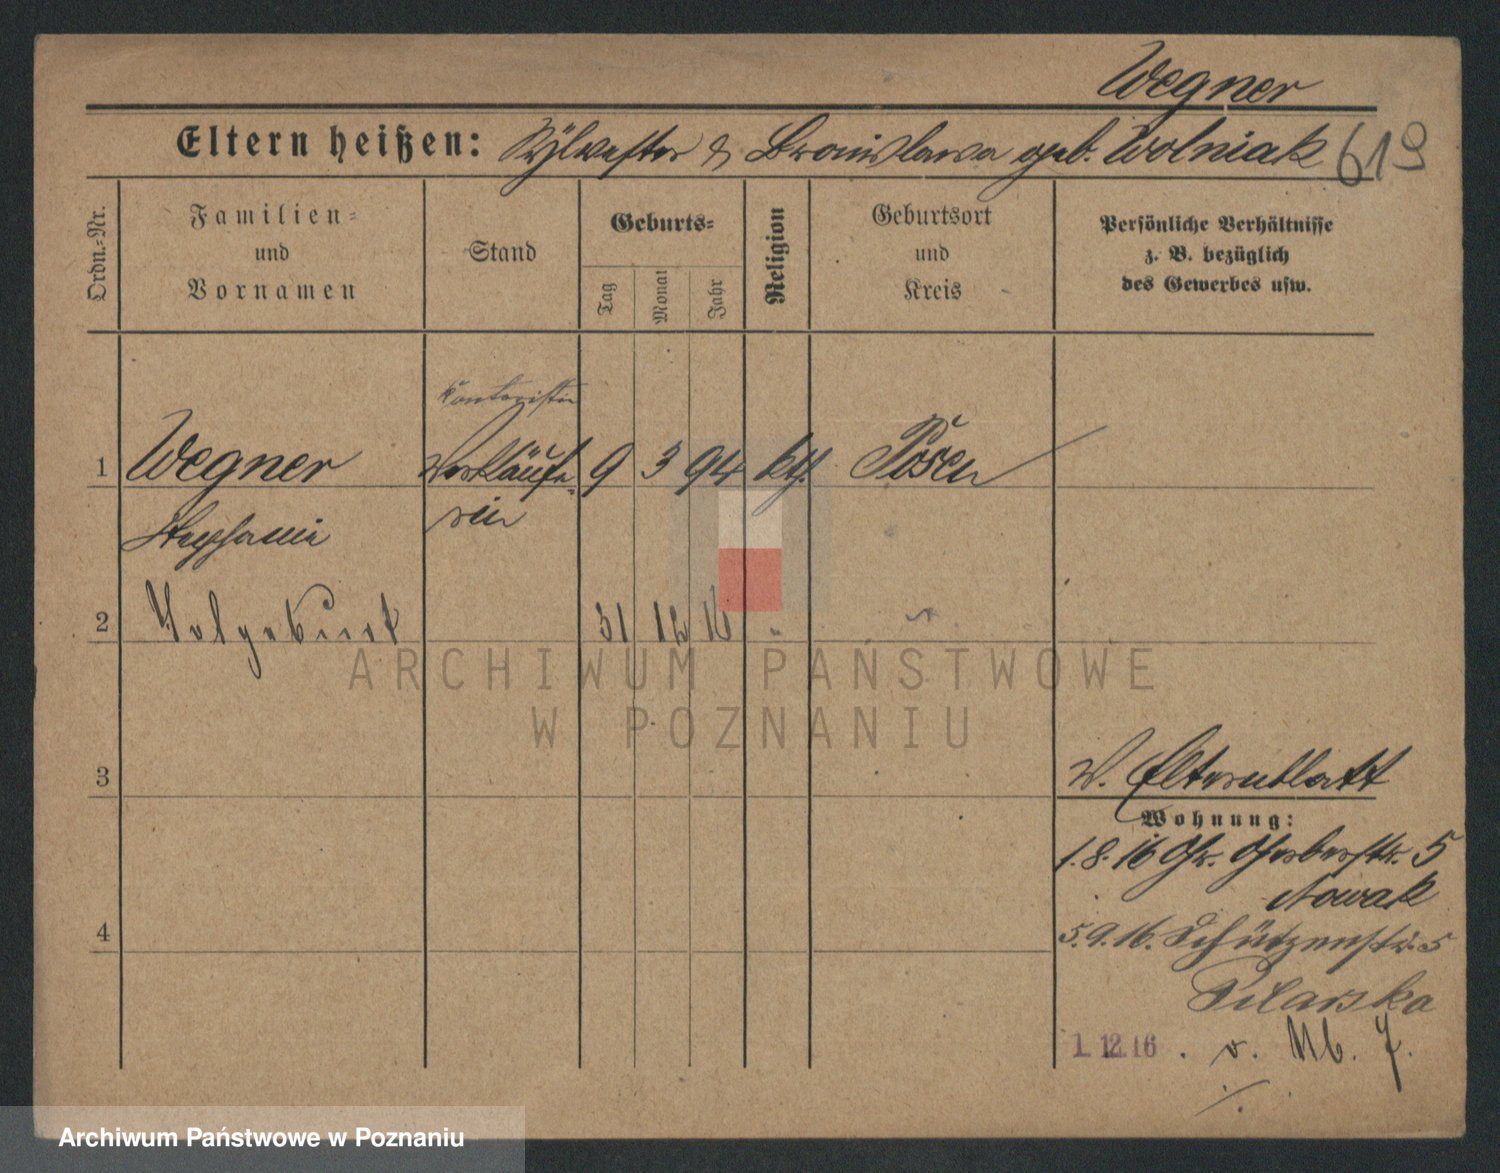 Wegner
Eltern heißen: Sylvester & Bronislawa geb. Wolniak 619
Ordn.=Nr.
Familien=
und
Vornamen
Stand
Geburts=
Tag
Monat
Jahr
Religion
Geburtsort
und
Kreis
Persönliche Verhältnisse
z. B. bezüglich
des Gewerbes usw.
Kontoristin
1 Wegner Verkäufe= 9 3 94 kth. Posen
Stephanie rin
2 Totgeburt 31 12 16 "
ARCHIWUM PAŃSTWOWE
W POZNANIU
3 Elternblatt
Wohnung:
1.8.16 Gr. Gerberstr. 5
Nowak
4 5.9.16. Schützenstr. 5
Pilarska
1.12.16. v. 7.
Archiwum Państwowe w Poznaniu